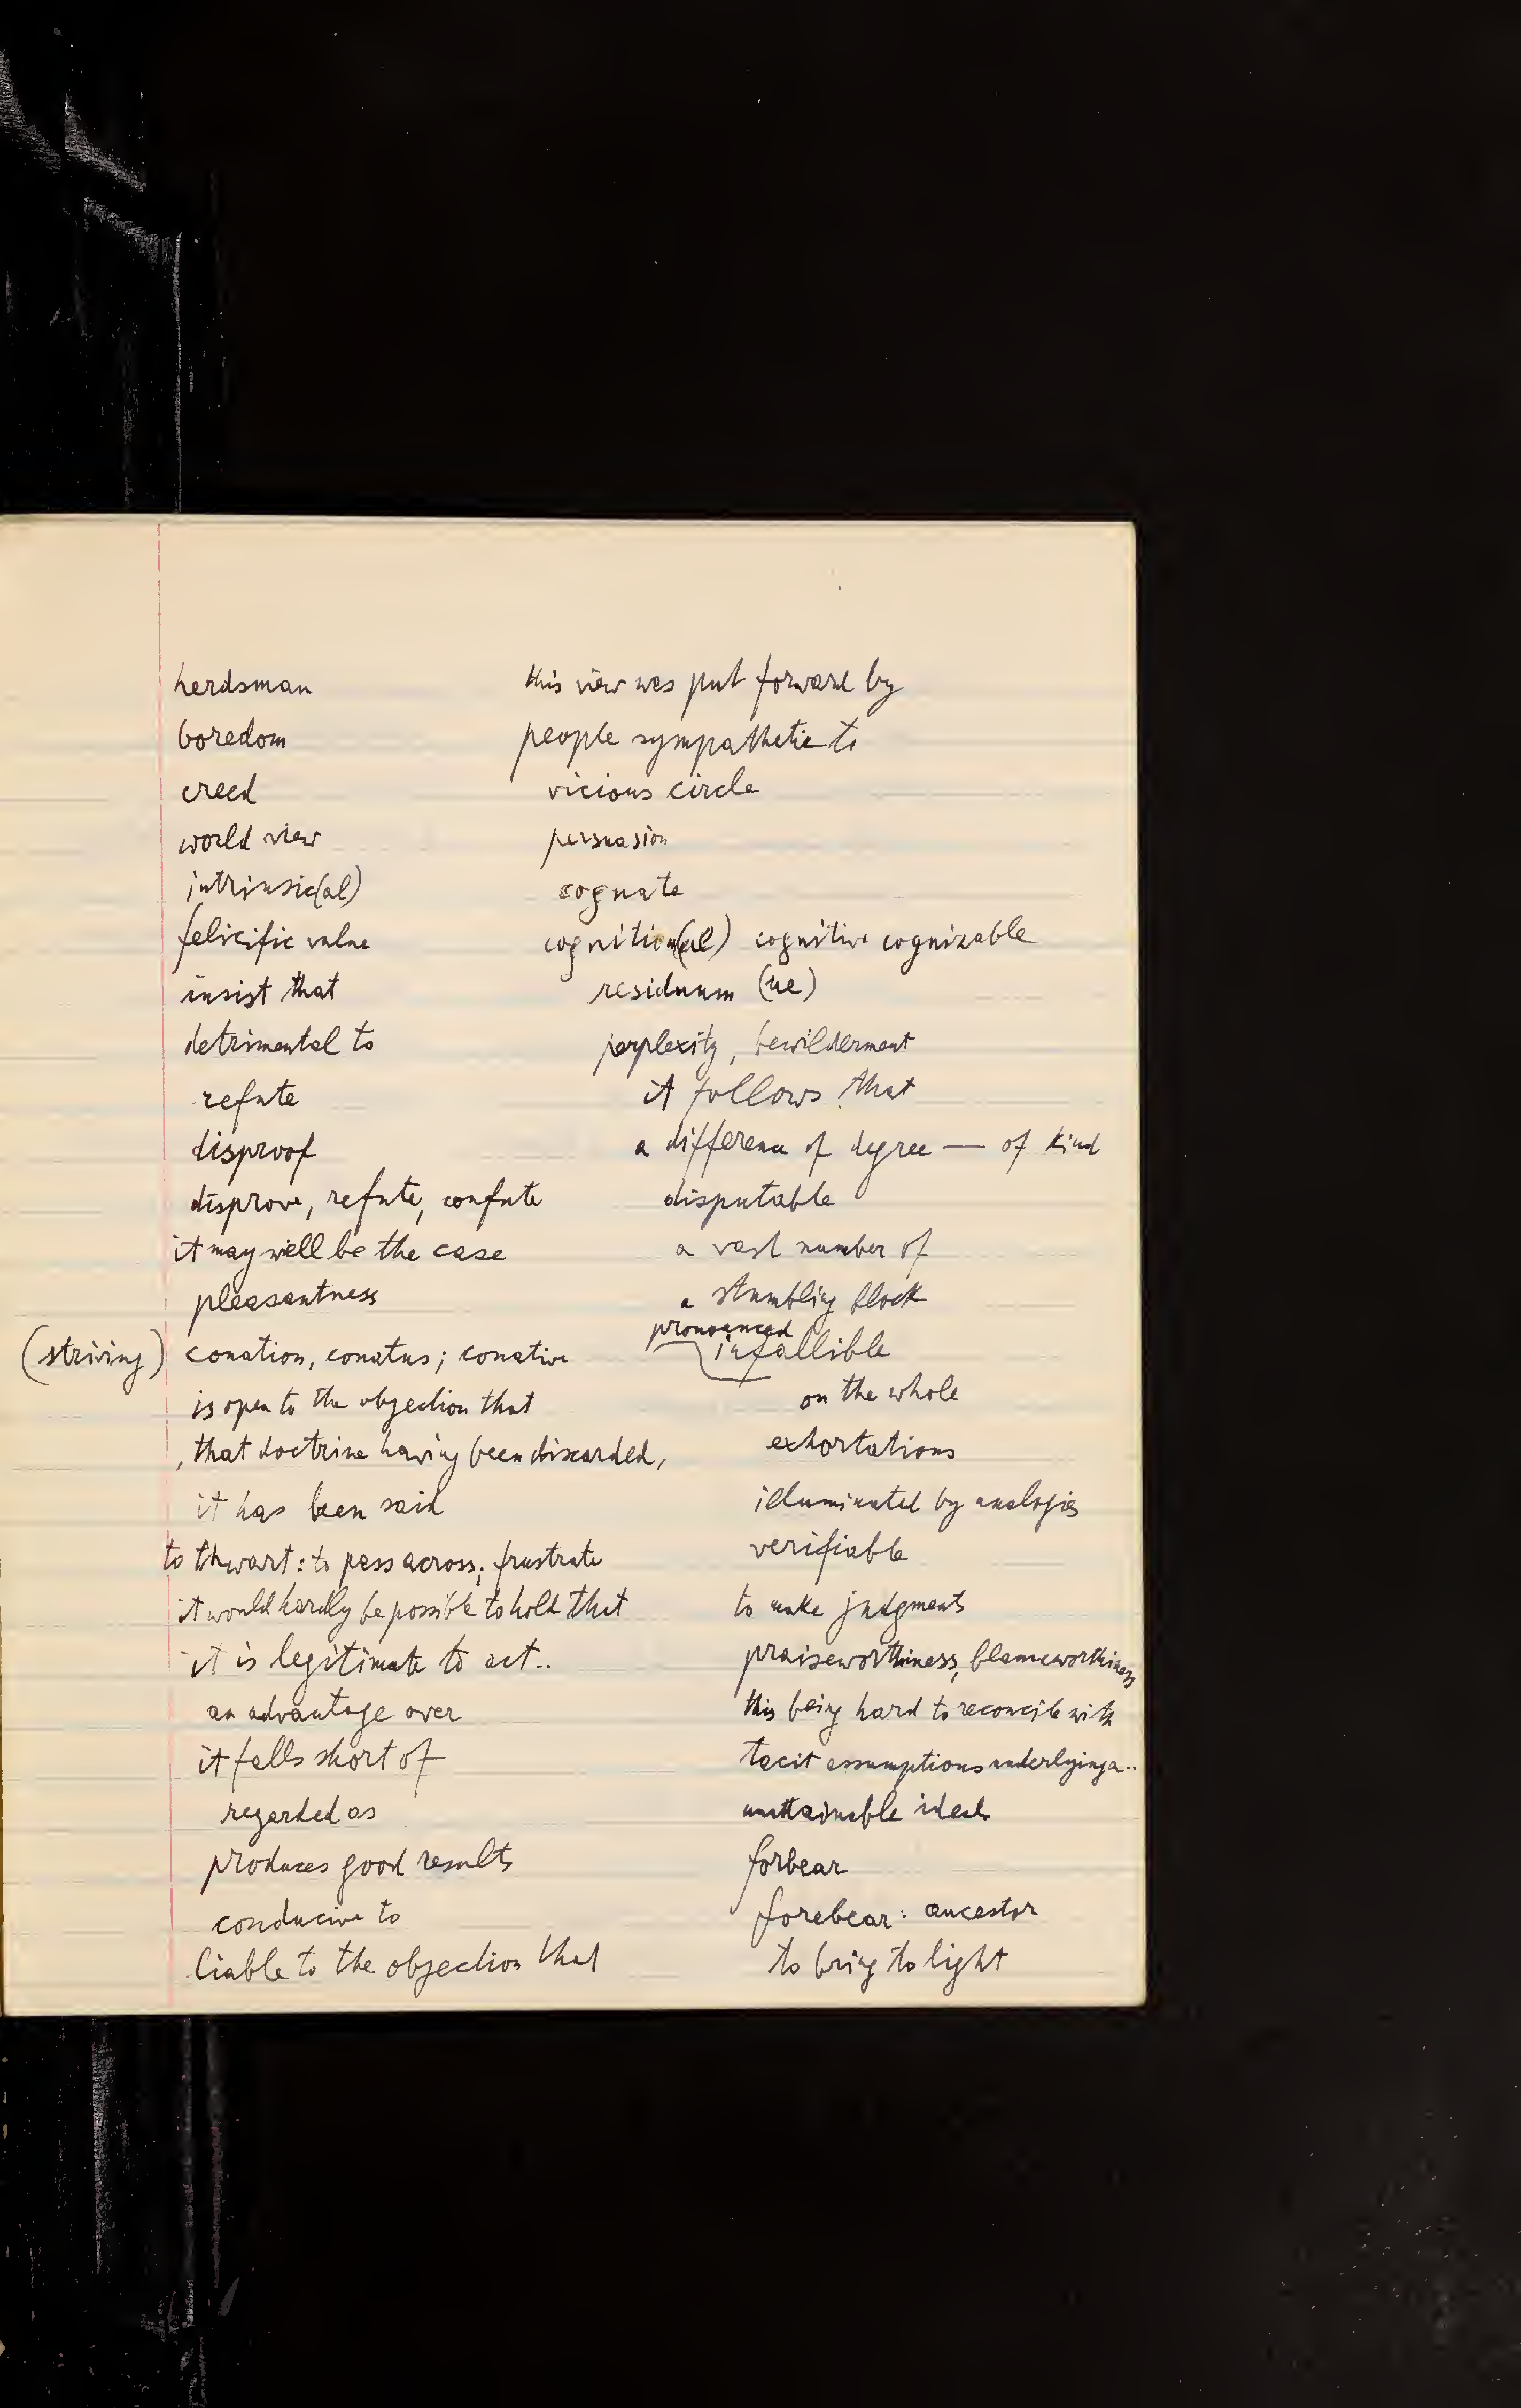 herdsman
boredom
creed
world view
intrinsic(al)
felicific value
insist that
detrimental to
refute
disproof
disprove, refute, confute
it may well be the case
pleasantness
(striving) conation, conatus; conative
is open to the objection that
, that doctrine having been discarded,
it has been said
to thwart: to pass across; frustrate
it would hardly be possible to hold that
it is legitimate to act..
an advantage over
it falls short of
regarded as
produces good results
conducive to
liable to the objection that
this view was put forward by
people sympathetic to
vicious circle
persuasion
cognate
cognition(al) cognitive cognizable
residuum (ue)
perplexity, bewilderment
it follows that
a difference of degree — of kind
disputable
a vast number of
a stumbling block
pronounced
infallible
on the whole
exhortations
illuminated by analogies
verifiable
to make judgments
praiseworthiness, blameworthiness
this being hard to reconcile with
tacit assumptions underlying a..
unattainable ideal
forbear
forebear: ancestor
to bring to light